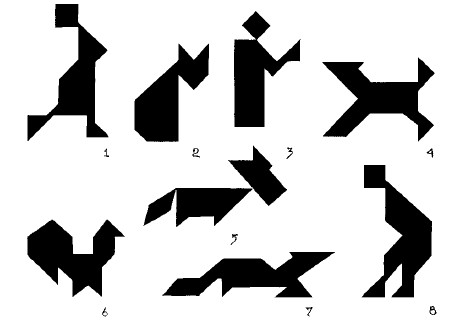 1 2 3 4
5
6 7 8